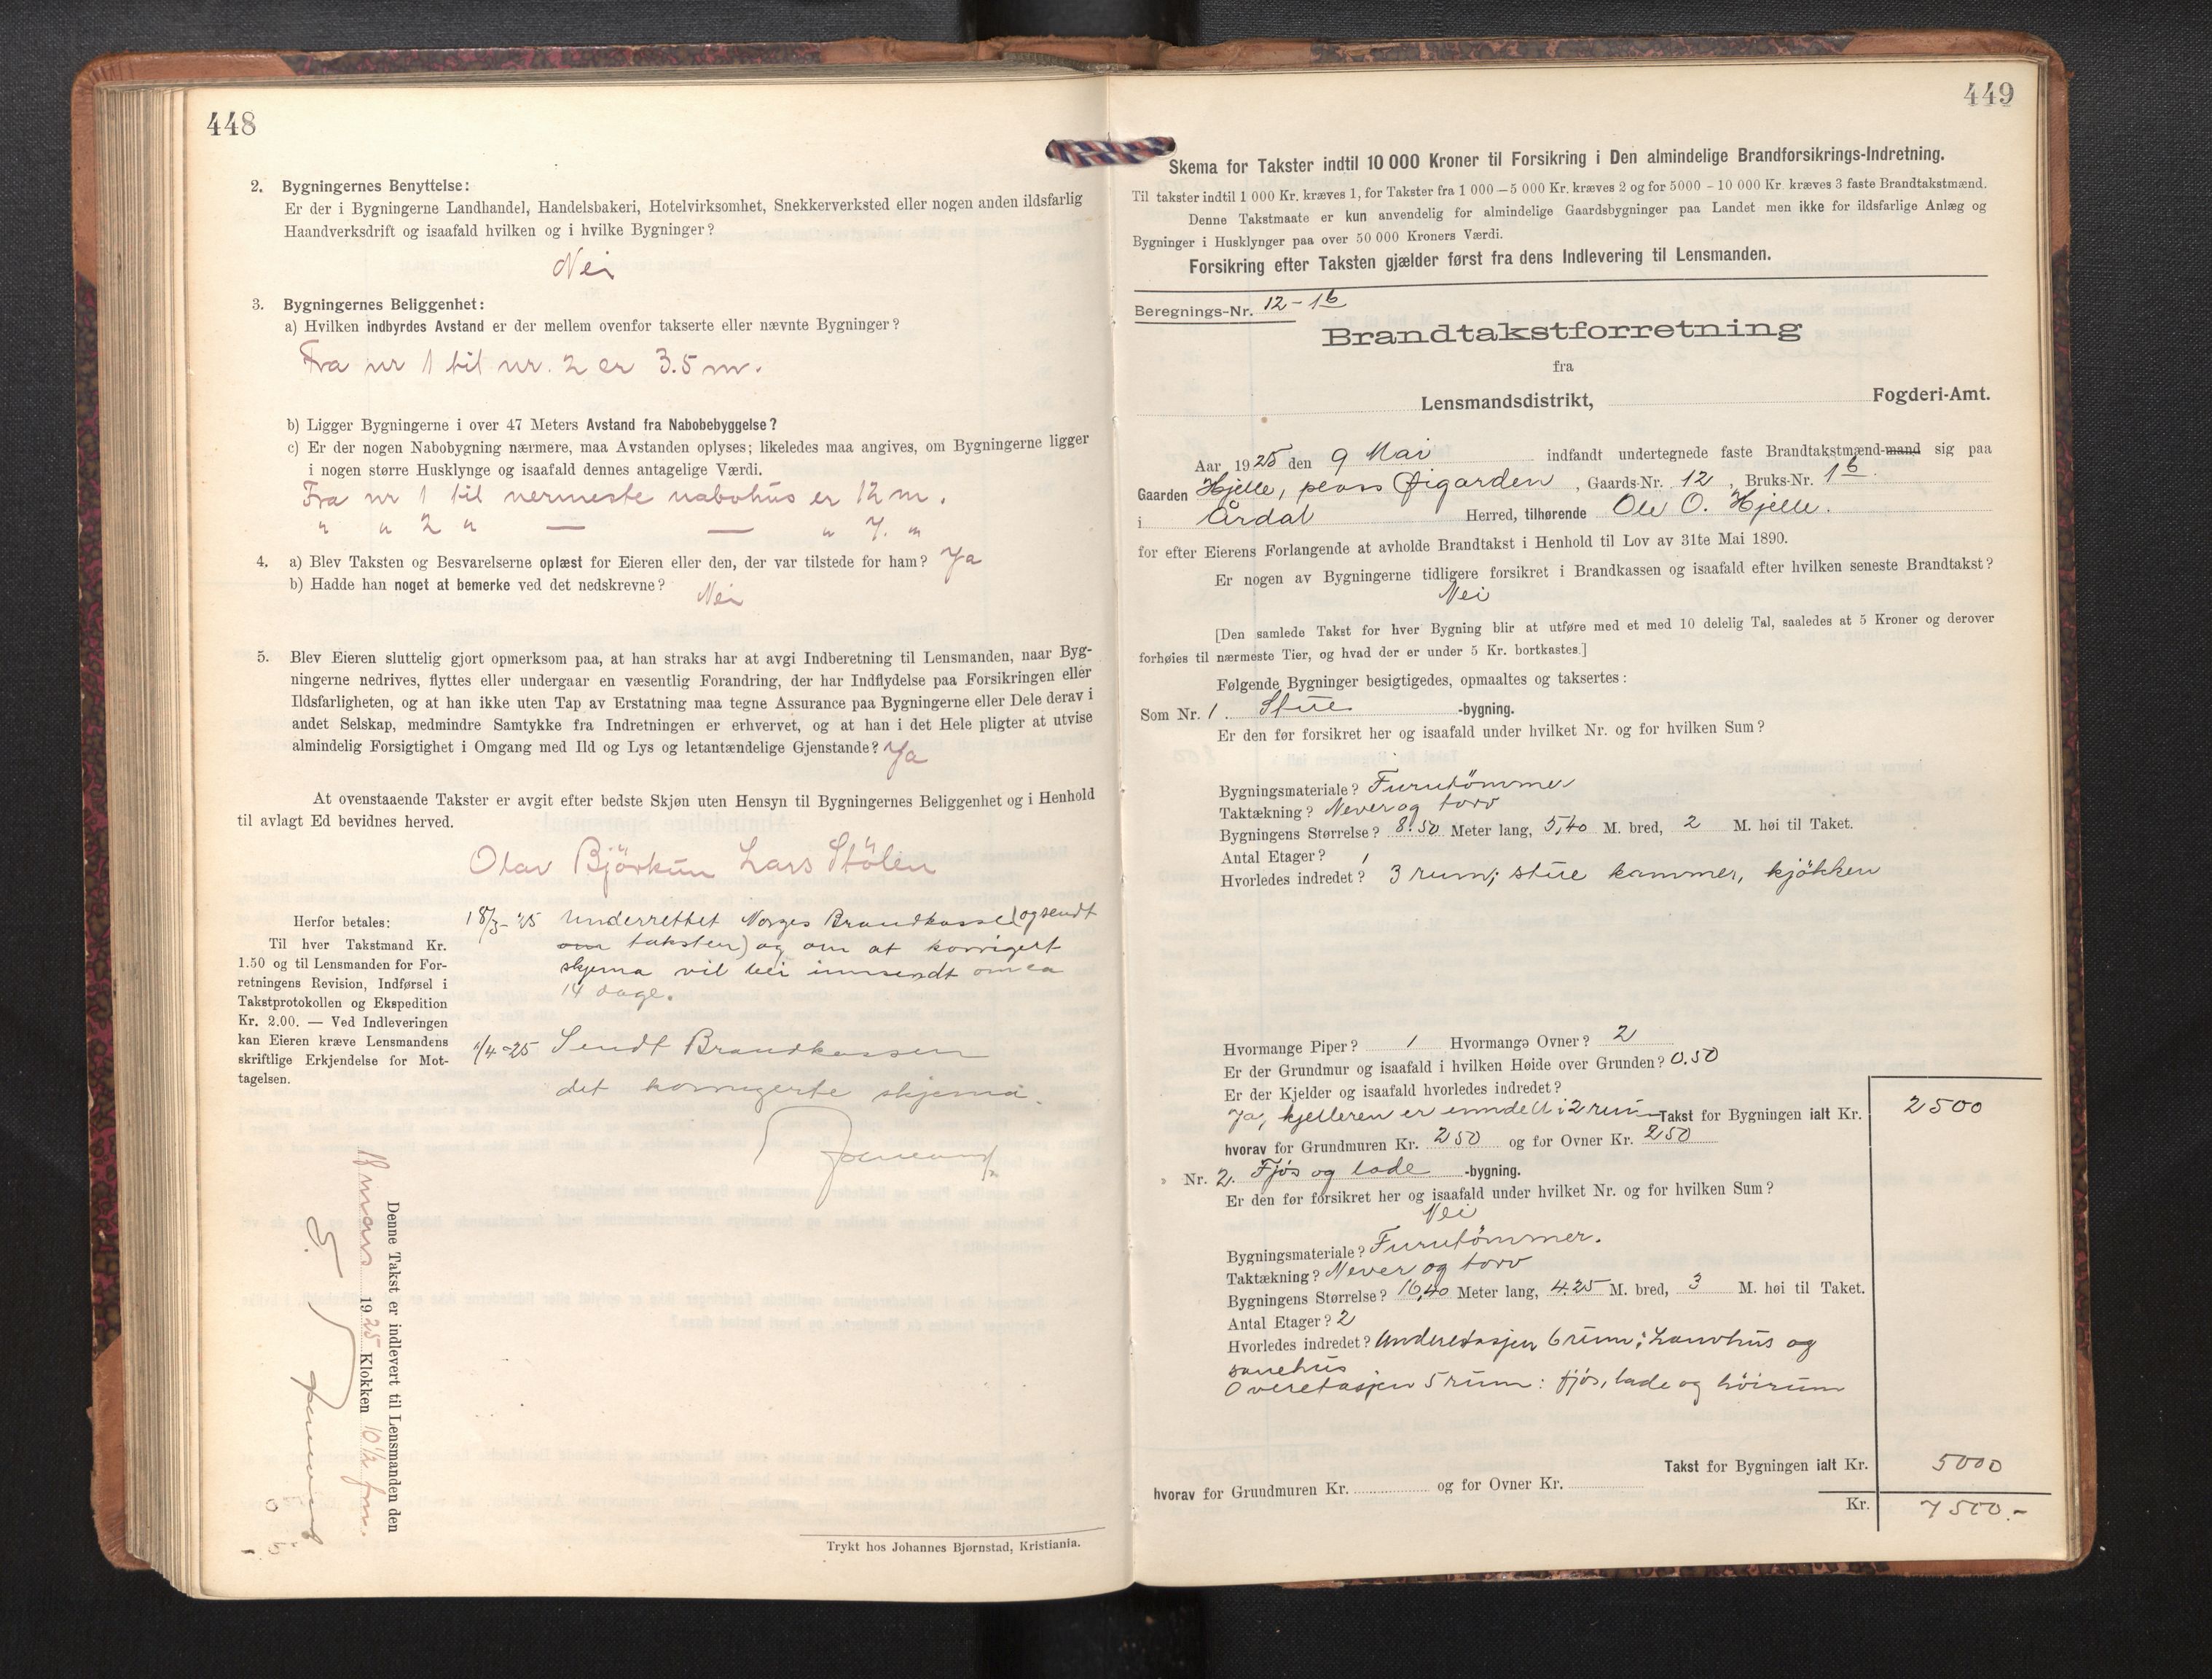 448
2. Bygningernes Benyttelse:
Er der i Bygningerne Landhandel, Handelsbakeri, Hotelvirksomhet, Snekkerverksted eller nogen anden ildsfarlig
Haandverksdrift og isaafald hvilken og i hvilke Bygninger?
Nei
3. Bygningernes Beliggenhet:
a) Hvilken indbyrdes Avstand er der mellem ovenfor takserte eller nævnte Bygninger?
Fra nr 1 til nr. 2 er 3.5 m.
b) Ligger Bygningerne i over 47 Meters Avstand fra Nabobebyggelse?
c) Er der nogen Nabobygning nærmere, maa Avstanden oplyses; likeledes maa angives, om Bygningerne ligger
i nogen større Husklynge og isaafald dennes antagelige Værdi.
Fra nr 1 til nermeste nabohus er 12 m.
" " 2 " — — " 7. "
4. a) Blev Taksten og Besvarelserne oplæst for Eieren eller den, der var tilstede for ham? Ja
b) Hadde han noget at bemerke ved det nedskrevne? Nei
5. Blev Eieren sluttelig gjort opmerksom paa, at han straks har at avgi Indberetning til Lensmanden, naar Byg-
ningerne nedrives, flyttes eller undergaar en væsentlig Forandring, der har Indflydelse paa Forsikringen eller
Ildsfarligheten, og at han ikke uten Tap av Erstatning maa tegne Assurance paa Bygningerne eller Dele derav i
andet Selskap, medmindre Samtykke fra Indretningen er erhvervet, og at han i det Hele pligter at utvise
almindelig Forsigtighet i Omgang med Ild og Lys og letantændelige Gjenstande? Ja
At ovenstaaende Takster er avgit efter bedste Skjøn uten Hensyn til Bygningernes Beliggenhet og i Henhold
til avlagt Ed bevidnes herved.
Olav Björkum Lars Stölen
Herfor betales:
Til hver Takstmand Kr.
1.50 og til Lensmanden for For-
retningens Revision, Indførsel i
Takstprotokollen og Ekspedition
Kr. 2.00. — Ved Indleveringen
kan Eieren kræve Lensmandens
skriftlige Erkjendelse for Mot-
tagelsen.
18/3-25 Underrettet Norges Brandkasse (og sendt
om taksten) og om at korrigert
skjema vil bli innsendt om ca
14 dage.
/4-25 Sendt Brandkassen
det korrigerte skjema.
Denne Takst er indlevert til Lensmanden den
18 mars 1925 Klokken 10½ fm.
Trykt hos Johannes Bjørnstad, Kristiania.
449
Skema for Takster indtil 10 000 Kroner til Forsikring i Den almindelige Brandforsikrings-Indretning.
Til takster indtil 1 000 Kr. kræves 1, for Takster fra 1 000 – 5 000 Kr. kræves 2 og for 5000 – 10 000 Kr. kræves 3 faste Brandtakstmænd.
Denne Takstmaate er kun anvendelig for almindelige Gaardsbygninger paa Landet men ikke for ildsfarlige Anlæg og
Bygninger i Husklynger paa over 50 000 Kroners Værdi.
Forsikring efter Taksten gjælder først fra dens Indlevering til Lensmanden.
Beregnings-Nr. 12 – 1b
Brandtakstforretning
fra
Lensmandsdistrikt, Fogderi-Amt.
Aar 1925 den 9 Mai indfandt undertegnede faste Brandtakstmænd-mand sig paa
Gaarden Hjelle, plass Øigarden, Gaards-Nr. 12, Bruks-Nr. 1b.
i Årdal Herred, tilhørende Ole O. Hjelle.
for efter Eierens Forlangende at avholde Brandtakst i Henhold til Lov av 31te Mai 1890.
Er nogen av Bygningerne tidligere forsikret i Brandkassen og isaafald efter hvilken seneste Brandtakst?
Nei
[Den samlede Takst for hver Bygning blir at utføre med et med 10 delelig Tal, saaledes at 5 Kroner og derover
forhøies til nærmeste Tier, og hvad der er under 5 Kr. bortkastes.]
Følgende Bygninger besigtigedes, opmaaltes og taksertes:
Som Nr. 1. Stue -bygning.
Er den før forsikret her og isaafald under hvilket Nr. og for hvilken Sum?
Bygningsmateriale? Furutömmer
Taktækning? Never og torv
Bygningens Størrelse? 8.50 Meter lang, 5,40 M. bred, 2 M. høi til Taket.
Antal Etager? 1
Hvorledes indredet? 3 rum; stue kammer, kjökken
Hvormange Piper? 1 Hvormange Ovner? 2
Er der Grundmur og isaafald i hvilken Høide over Grunden? 0.50
Er der Kjelder og isaafald hvorledes indredet?
Ja, kjelleren er inndelt i 2 rum Takst for Bygningen ialt Kr. 2500
hvorav for Grundmuren Kr. 250 og for Ovner Kr. 250
Nr. 2. Fjös og lade -bygning.
Er den før forsikret her og isaafald under hvilket Nr. og for hvilken Sum?
Nei
Bygningsmateriale? Furutömmer.
Taktækning? Never og torv
Bygningens Størrelse? 16,40 Meter lang, 4.25 M. bred, 3 M. høi til Taket.
Antal Etager? 2
Hvorledes indredet? Underetasjen 6 rum: Lauvhus og
sauehus
Overetasjen 5 rum: fjös, lade og höirum
Takst for Bygningen ialt Kr. 5000
hvorav for Grundmuren Kr. og for Ovner Kr.
Kr. 7500.-